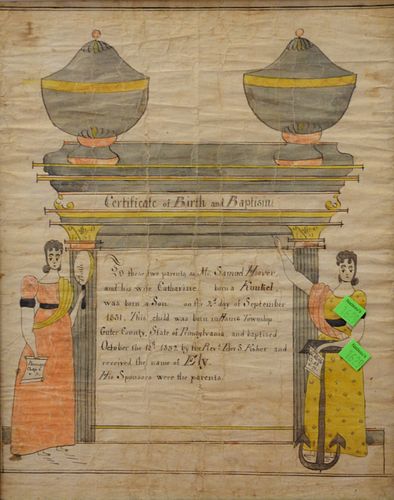 Certificate of Birth and Baptism
To these two parents as Mr. Samuel Hoover,
and his wife Catharine born a Kunkel
was born a Son on the 2d day of September
1831. This child was born in Hains Township
Center County, State of Pennsylvania, and baptised
October the 12th, 1832. by the Revd. Per S. Fisher and
received the name of Ely.
His Sponsors were the parents.